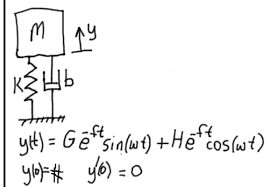 M
y
K
b
y(t) = Ge^-ft sin(wt) + He^-ft cos(wt)
y(0)=# y'(0) = 0